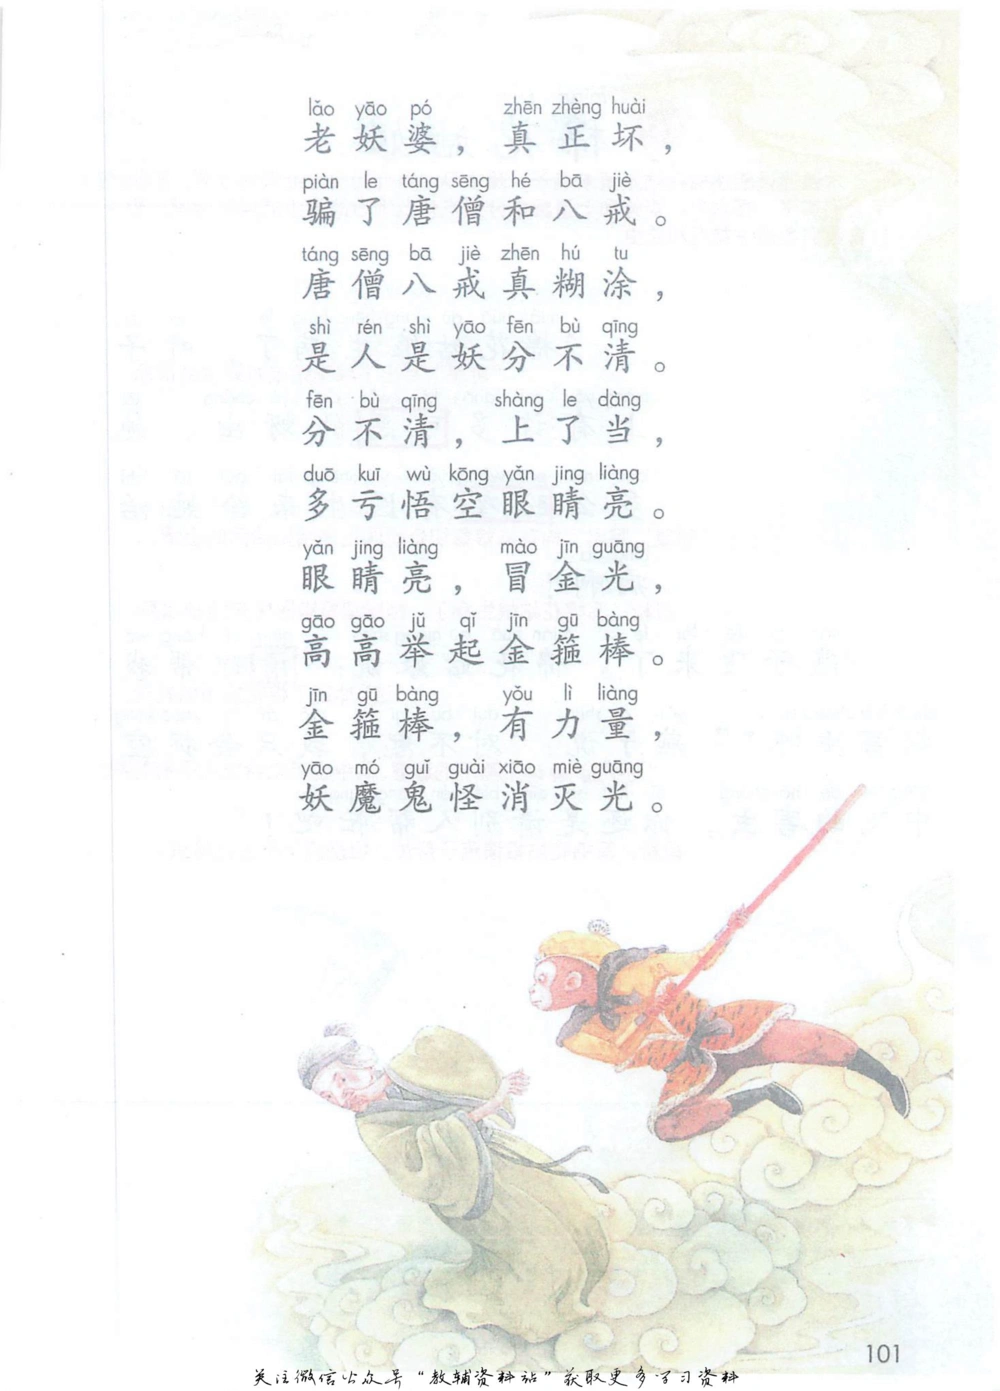 lǎo yāo pó zhēn zhèng huài
老妖婆，真正坏，
piàn le táng sēng hé bā jiè
骗了唐僧和八戒。
táng sēng bā jiè zhēn hú tu
唐僧八戒真糊涂，
shì rén shì yāo fēn bù qīng
是人是妖分不清。
fēn bù qīng shàng le dàng
分不清，上了当，
duō kuī wù kōng yǎn jing liàng
多亏悟空眼睛亮。
yǎn jing liàng mào jīn guāng
眼睛亮，冒金光，
gāo gāo jǔ qǐ jīn gū bàng
高高举起金箍棒。
jīn gū bàng yǒu lì liàng
金箍棒，有力量，
yāo mó guǐ guài xiāo miè guāng
妖魔鬼怪消灭光。
101
关注微信公众号“教辅资料站”获取更多学习资料